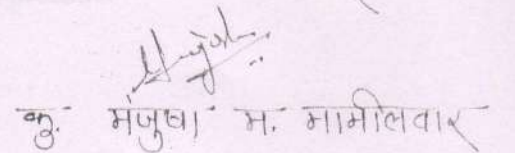 कु. मंजुषा म. मामीलवार